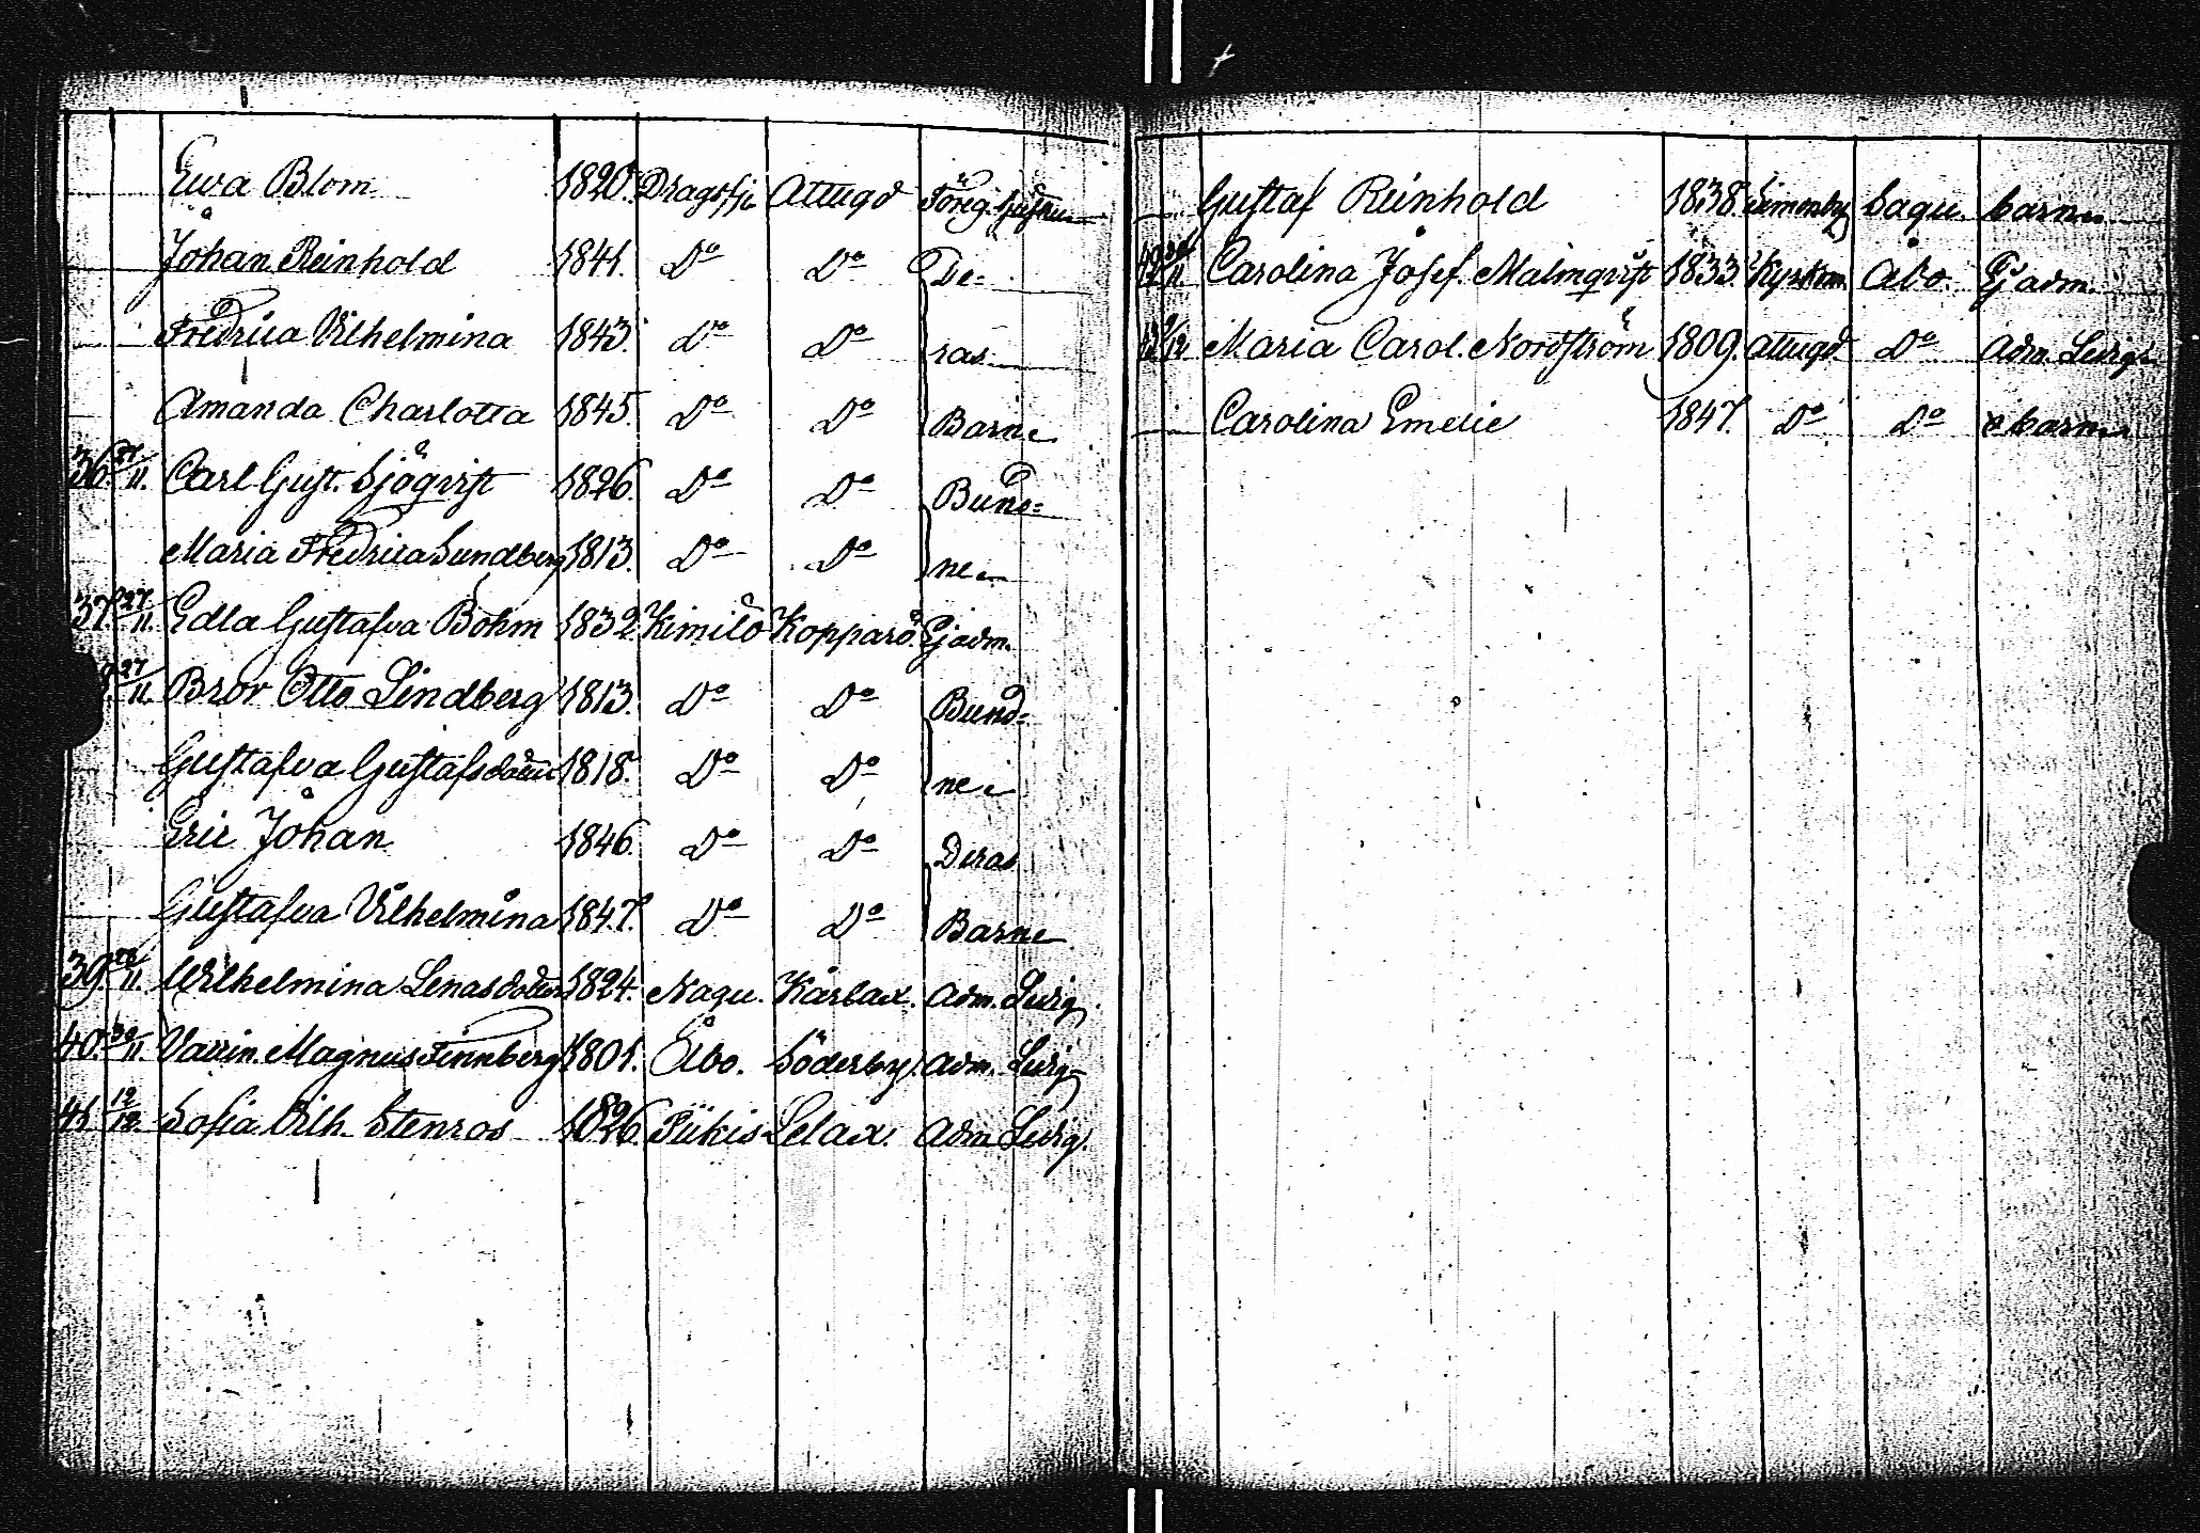 Ewa Blom 1820. Dragsfj. Attugd Föreg. hustru
Johan Reinhold 1841. Do Do De-
Fredrica Vilhelmina 1843. Do Do ras
Amanda Charlotta 1845. Do Do Barn
36. 27/11. Carl Gust. Sjöqvist 1826. Do Do Bund-
Maria Fredrica Sundberg 1813. Do Do ne
37. 27/11. Edla Gustafva Böhm 1832. Kimito Kopparö. Ej adm.
27/11. Bror Otto Lindberg 1813. Do Do Bund-
Gustafva Gustafsdotter 1818. Do Do ne
Eric Johan 1846. Do Do Deras
Gustafva Vilhelmina 1847. Do Do Barn
39. 28/11. Wilhelmina Lenasdotter 1824. Nagu. Kärlax. Adm. Ledig
40. 30/11. Magnus Finnberg 1801. Åbo. Söderby. Adm. Ledig
41. 12/12. Sofia Vilh. Stenros 1826. Piikis Lelax. Adm. Ledig.
Gustaf Reinhold 1838. Simonby Sagu. barn
Carolina Josef. Malmqvist 1833. Kyrkom. Åbo. Ej adm.
Maria Carol. Nordström 1809. Attugd. Do Adm. Ledig
Carolina Emelie 1847. Do Do barn